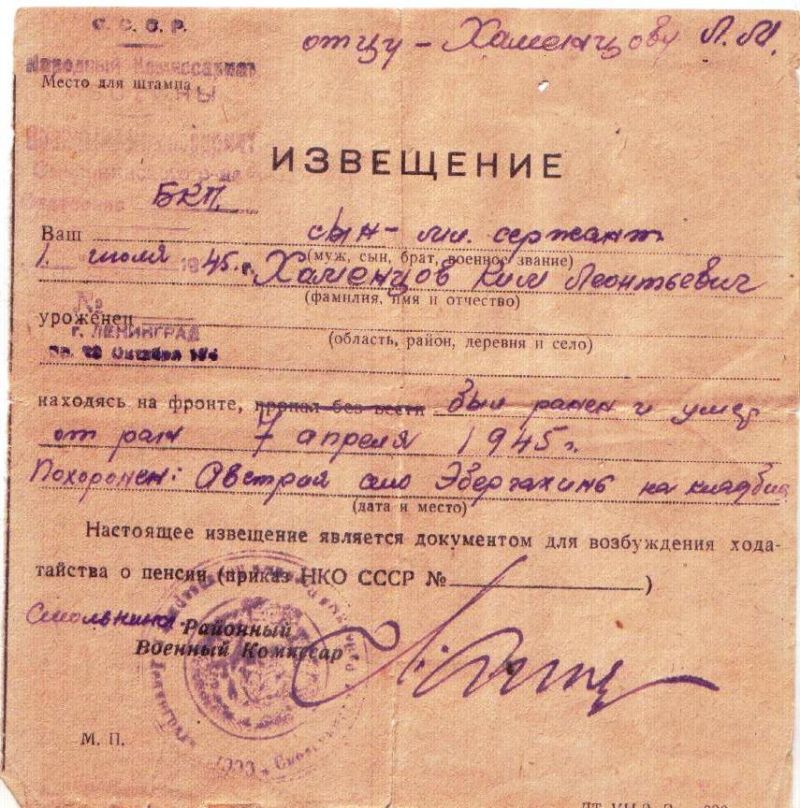 С. С. С. Р.
отцу - Хаменцову Л. М.
Народный Комиссариат
Место для штампа
ИЗВЕЩЕНИЕ
Ваш сын - мл. сержант
(муж, сын, брат, военное звание)
1. июля 1945 г. Хаменцов Ким Леонтьевич
(фамилия, имя и отчество)
№
уроженец
г. ЛЕНИНГРАД
(область, район, деревня и село)
находясь на фронте, пропал без вести был ранен и умер
от ран 7 апреля 1945 г.
Похоронен: Австрия село на кладбище
(дата и место)
Настоящее извещение является документом для возбуждения хода-
тайства о пенсии (приказ НКО СССР № )
Районный
Военный Комиссар
М. П.